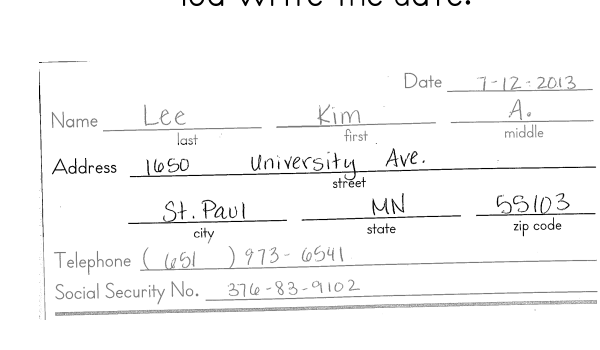 You write the date.
Date 7-12-2013
Name Lee Kim A.
last first middle
Address 1650 University Ave.
street
St. Paul MN 55103
city state zip code
Telephone (651) 973-6541
Social Security No. 376-83-9102